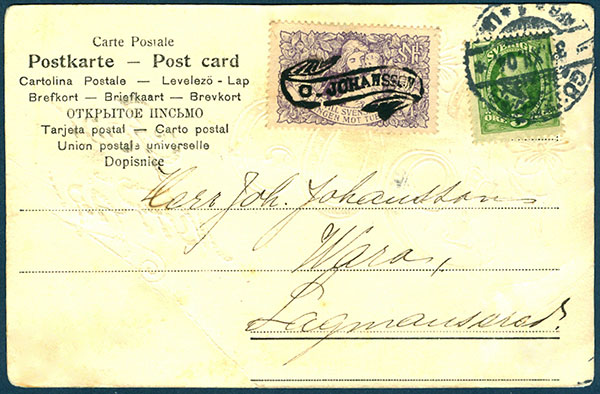 Carte Postale
Postkarte — Post card
Cartolina Postale — Levelező - Lap
Brefkort — Briefkaart — Brevkort
ОТКРЫТОЕ ПИСЬМО
Tarjeta postal — Carto postal
Union postale universelle
Dopisnice
O. JOHANSSON
SVERIGE
Herr Joh. Johansson
Wara,
Lagmansered.